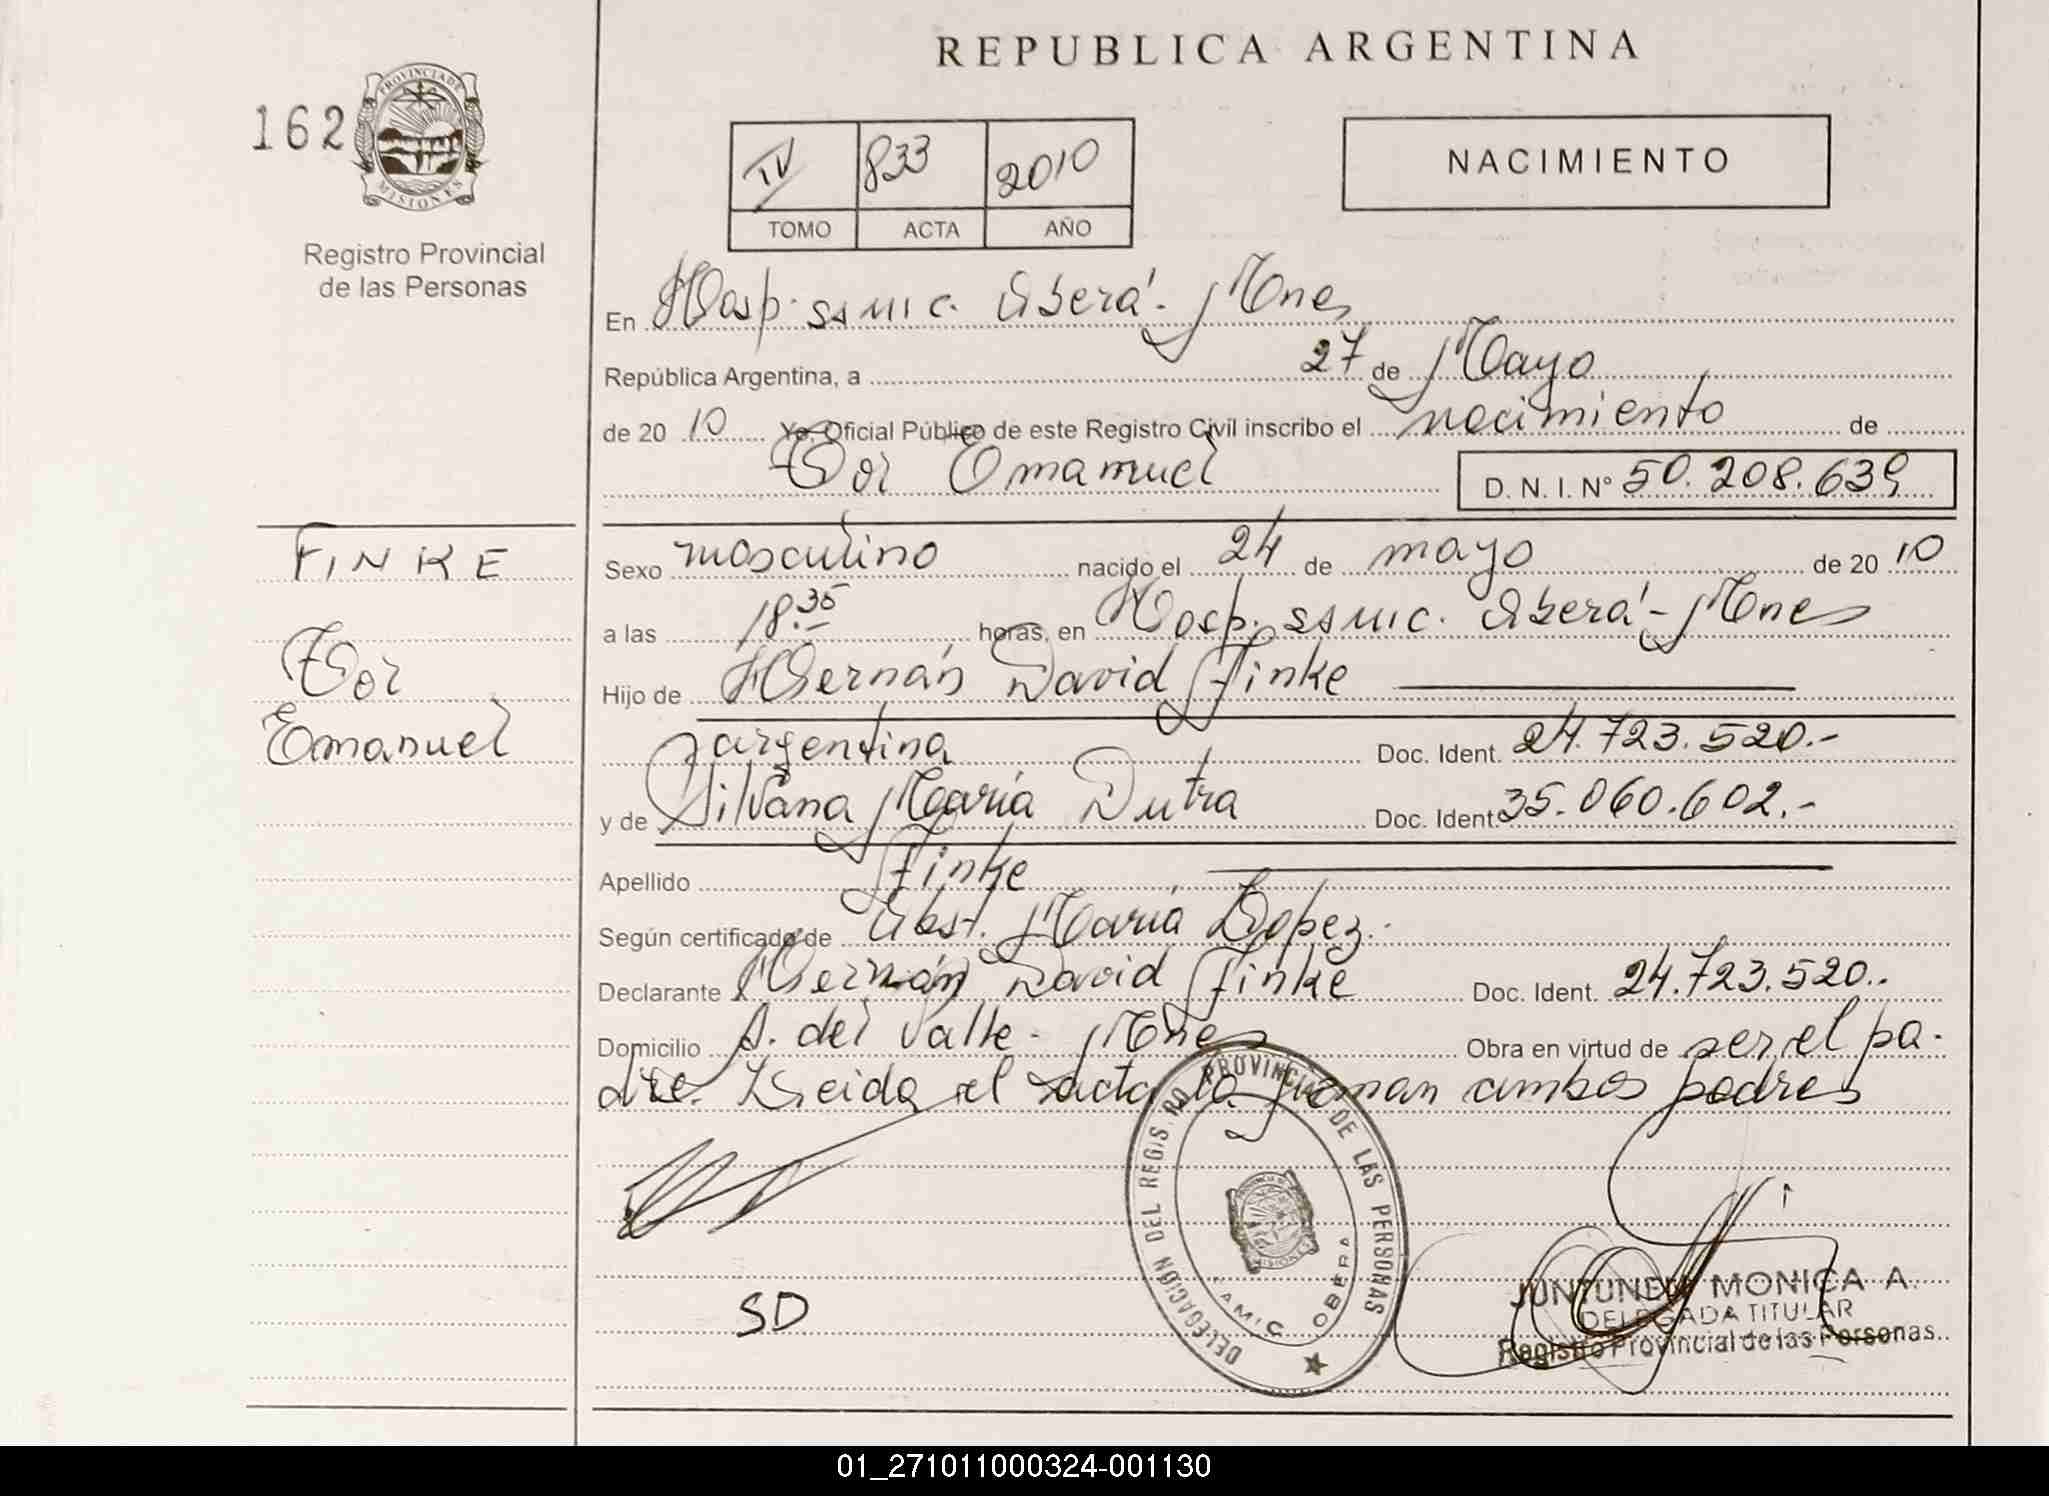 REPUBLICA ARGENTINA
162
PROVINCIA DE
MISIONES
Registro Provincial
de las Personas
IV 833 2010
TOMO ACTA AÑO
NACIMIENTO
En Hosp. SAMIC. Oberá - Mnes
República Argentina, a 27 de Mayo
de 20 10 Yo, Oficial Público de este Registro Civil inscribo el nacimiento de
Emanuel
D. N. I. N° 50.208.639
FINKE
Emanuel
Sexo masculino nacido el 24 de mayo de 20 10
a las 18.35 horas, en Hosp. SAMIC. Oberá - Mnes
Hijo de Hernán David Finke
argentina Doc. Ident. 24.723.520.-
y de Silvana María Dutra Doc. Ident. 35.060.602.-
Apellido Finke
Según certificado de Obst. María Lopez.-
Declarante Hernán David Finke Doc. Ident. 24.723.520.-
Domicilio A. del Valle - Mnes Obra en virtud de ser el pa-
dre. Leida el acta la firman ambos padres
DELEGACION DEL REGISTRO PROVINCIAL DE LAS PERSONAS
MISIONES
SAMIC OBERA
SD
JUNTUNEN MONICA A.
DELEGADA TITULAR
Registro Provincial de las Personas
01_271011000324-001130